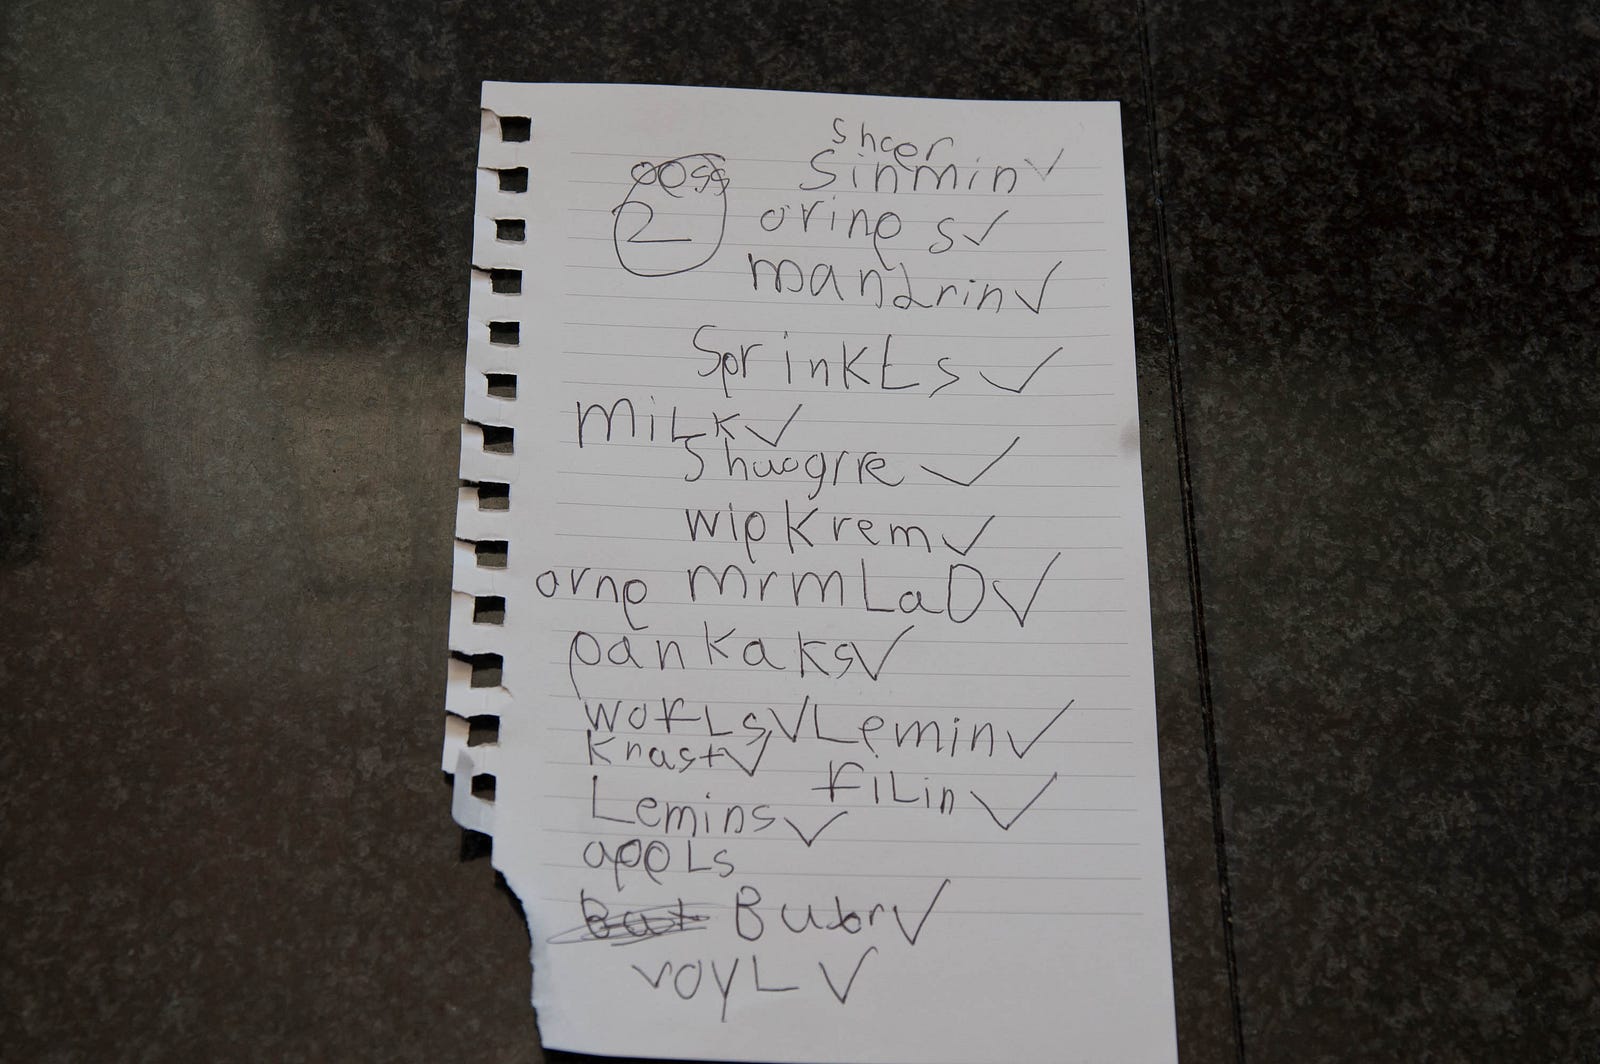 shcer
Sinmin✓
2
oringe s✓
mandrin✓
SprinkLs ✓
MiLk✓
Shuogrre ✓
wip Krem✓
orne MrmLaD✓
pankaks✓
worLs✓ Lemin✓
Knast✓
FiLin ✓
Lemins ✓
appLs
Butor✓
voyL ✓